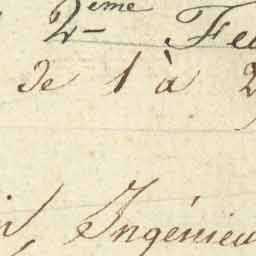 2eme Feu
de 1 à 2
Ingénieu